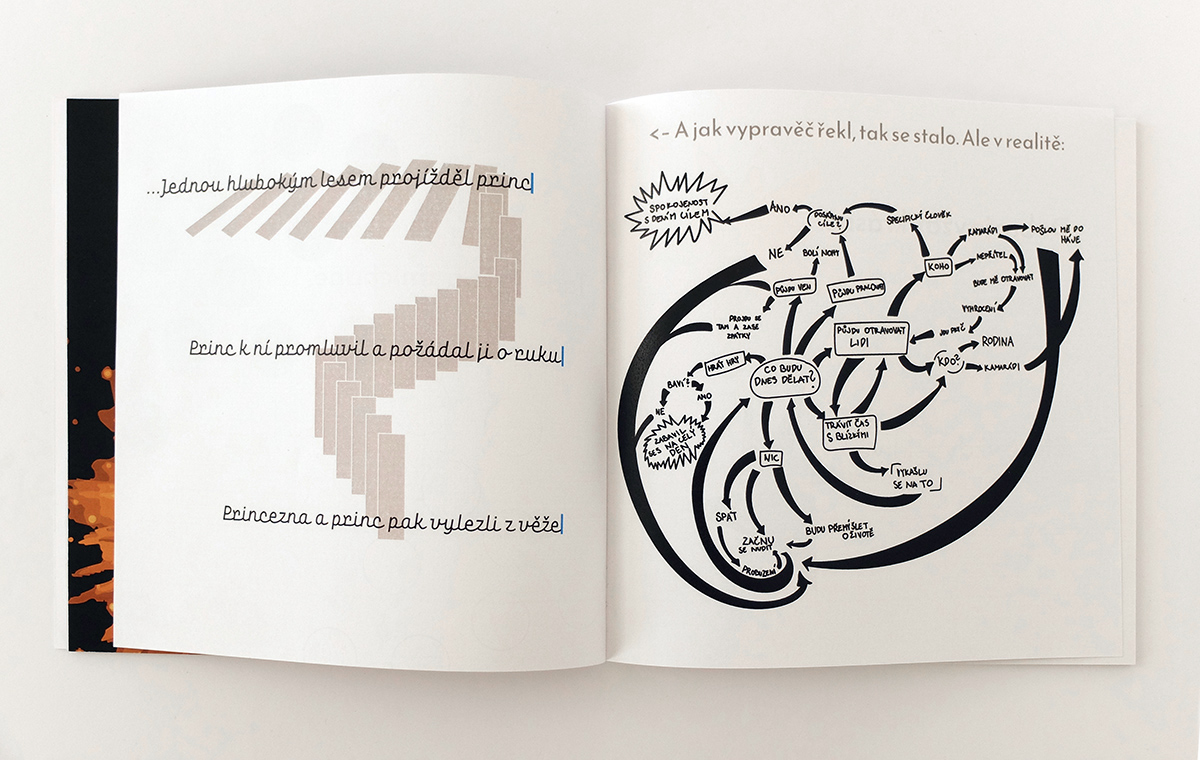 ...Jednou hlubokým lesem projížděl princ
Princ k ní promluvil a požádal ji o ruku
Princezna a princ pak vylezli z věže
<- A jak vypravěč řekl, tak se stalo. Ale v realitě:
SPOKOJENOST
S DENÍM CÍLEM
ANO
CÍLE?
SPECIFICKÝ ČLOVĚK
KAMARÁDI
POŠLOU MĚ DO
HÁJE
NE
BOLÍ NOHY
KOHO
NEPŘÍTEL
BUDE MĚ OTRAVOVAT
PŮJDU VEN
PŮJDU PRACOVAT
VYHROCENÍ
PROJDU SE
TAM A ZASE
ZPÁTKY
PŮJDU OTRAVOVAT
LIDI
RODINA
HRÁT HRY
CO BUDU
DNES DĚLAT?
KDO?
KAMARÁDI
BAVÍ?
ANO
NE
ZABAVIL
SES NA CELÝ
DEN
TRÁVIT ČAS
S BLÍZKÝMI
NIC
VYKAŠLU
SE NA TO
SPÁT
BUDU PŘEMÍŠLET
O ŽIVOTĚ
ZAČNU
SE NUDIT
PROBUZENÍ